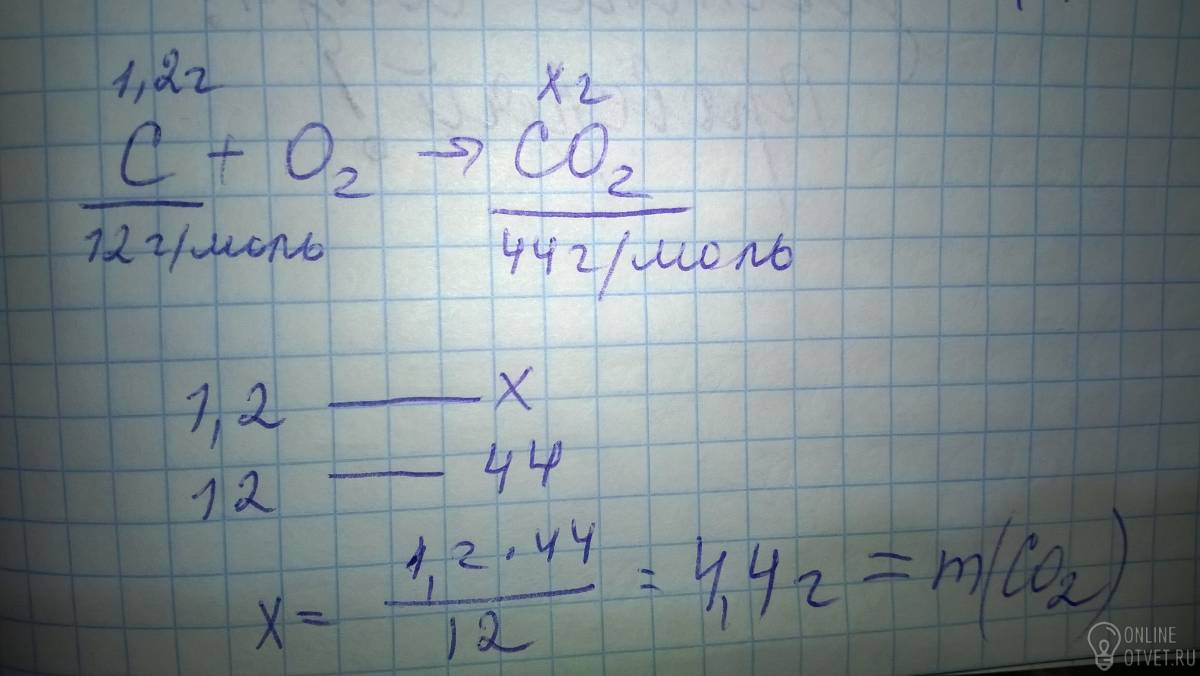 1,2г xг
C + O₂ → CO₂
12г/моль 44г/моль
1,2 — x
12 — 44
x = 1,2 · 44 / 12 = 4,4г = m(CO₂)
ONLINE
OTVET.RU